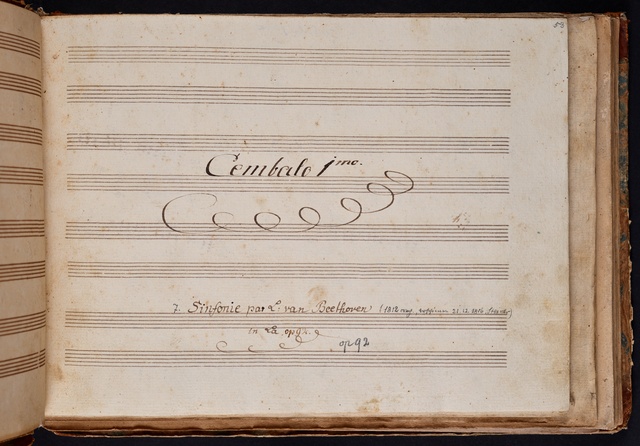 Cembalo 1mo.
7. Sinfonie par L. van Beethoven (1812
in op 92.
op 92